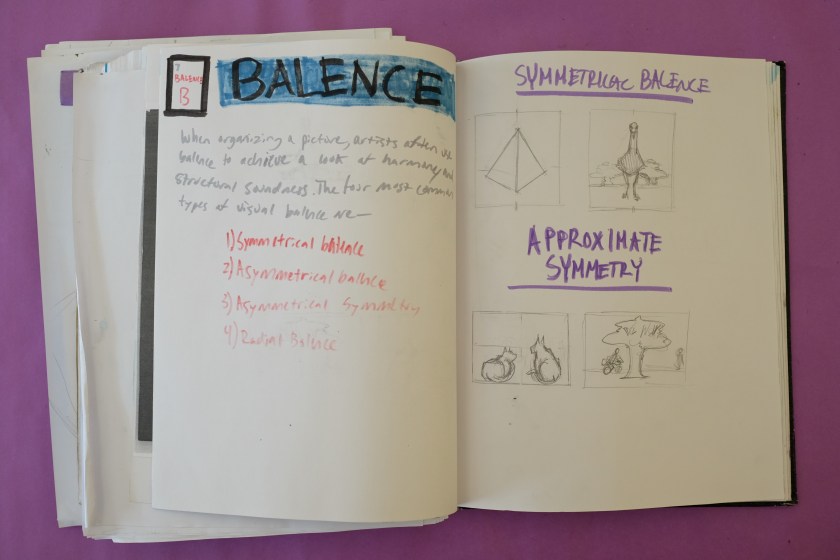 BALENCE
B
BALENCE
When organizing a picture, artists often us
balence to achieve a look at harmony, and
structural soundness. The four most common
types of visual balence are—
1) Symmetrical balence
2) Asymmetrical balence
3) Asymmetrical Symmetry
4) Radial Balence
SYMMETRICAL BALENCE
APPROXIMATE
SYMMETRY